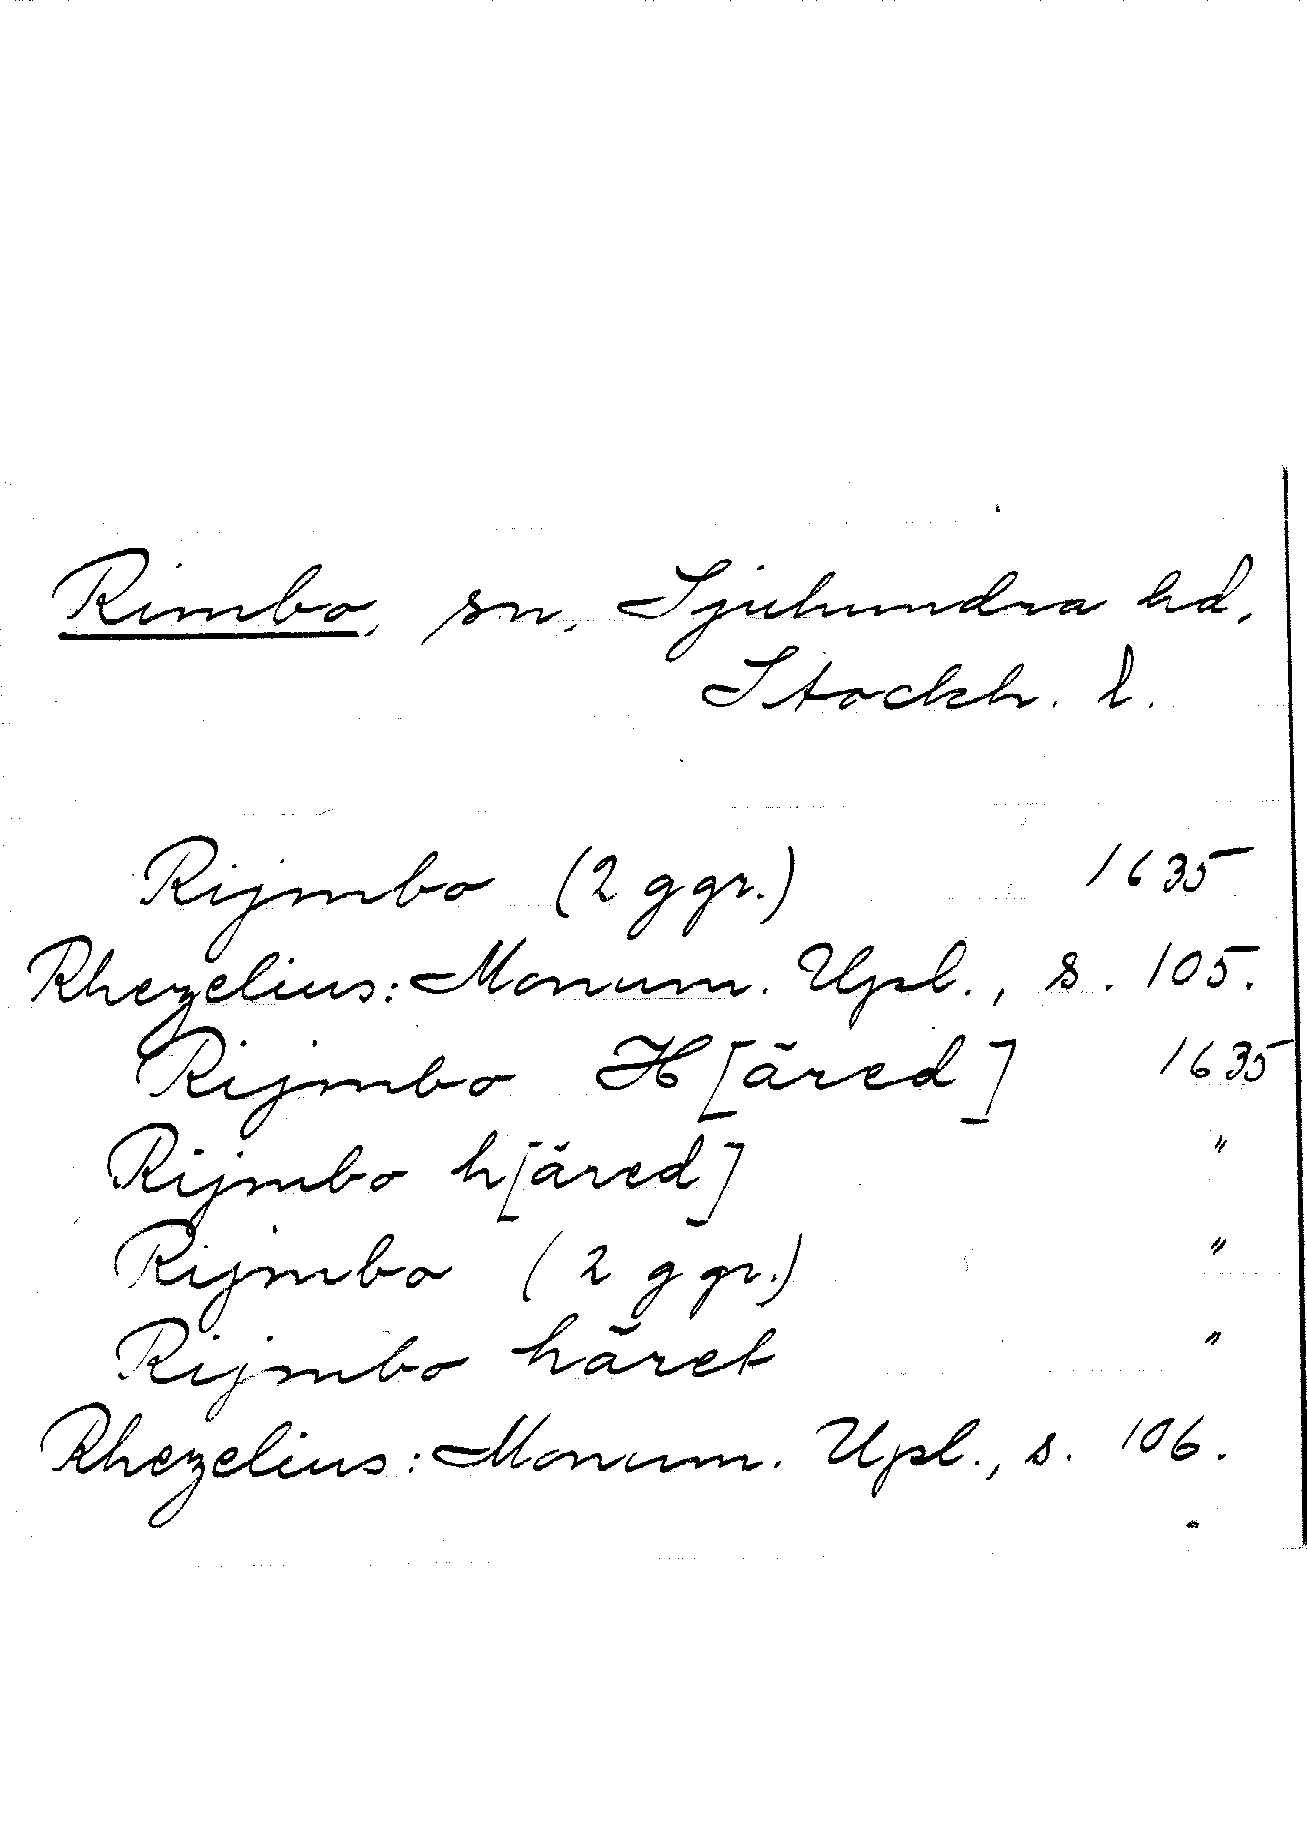 Rimbo, sn, Sjuhundra hd,
Stockh. l.
Rijmbo (2 ggr.) 1635
Rhezelius: Monum. Upl., s. 105.
Rijmbo H[äred] 1635
Rijmbo h[äred] "
Rijmbo (2 ggr.) "
Rijmbo häret "
Rhezelius: Monum. Upl., s. 106.